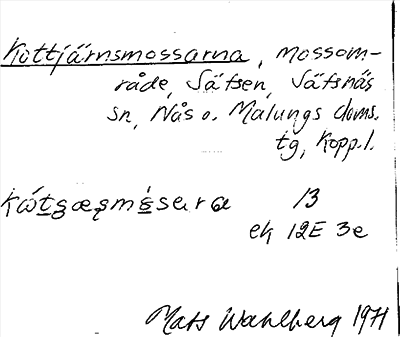 Kottjärnsmossarna, mossom-
råde, Säfsen, Säfsnäs
sn, Nås o. Malungs doms.
tg, Kopp.l.
13
ek 12E 3e
Mats Wahlberg 1971